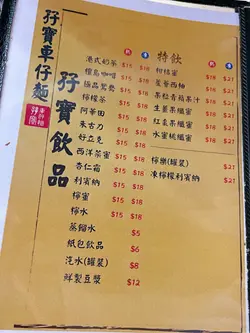 孖寶車仔麵
孖寶飲品
熱 凍
港式奶茶 $15 $18
檀島咖啡 $15 $18
極品鴛鴦 $15 $18
檸檬茶 $15 $18
阿華田 $15 $18
朱古力 $15 $18
好立克 $15 $18
西洋菜蜜 $15 $18
杏仁霜 $15 $18
利賓納 $15 $18
檸蜜 $15 $18
檸水 $15 $18
蒸餾水 $5
紙包飲品 $6
汽水(罐裝) $8
鮮製豆漿 $12
特飲
柑桔蜜 $18 $21
$18 $21
果粒香蘋果汁 $18 $21
生薑果纖蜜 $18 $21
紅棗果纖蜜 $18 $21
水蜜桃纖蜜 $18 $21
檸樂(罐裝) $21
凍檸檬利賓納 $21